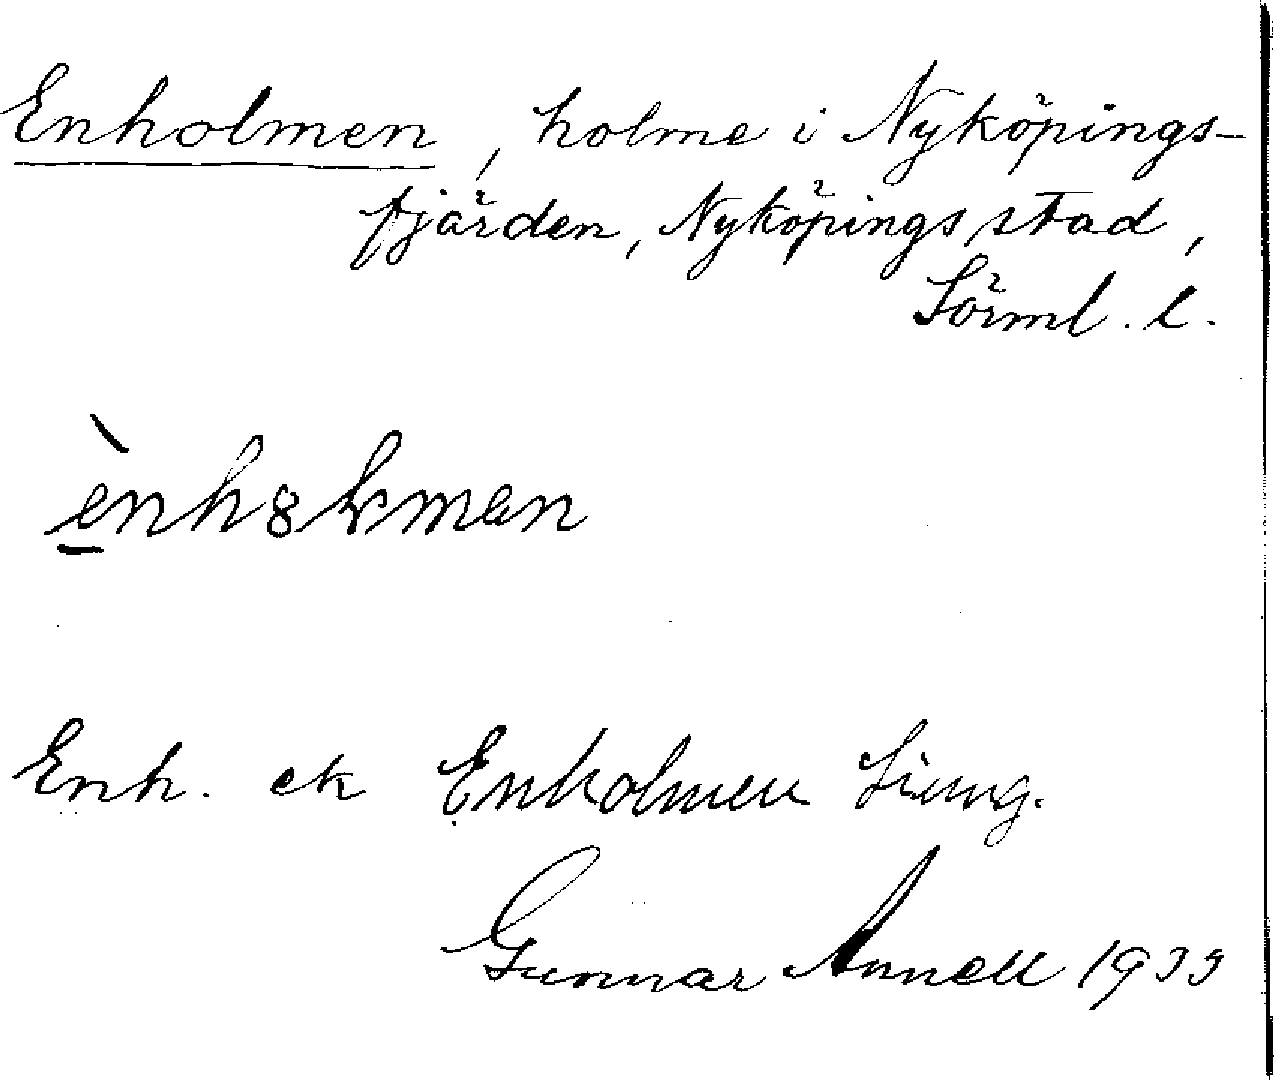 Enholmen, holme i Nyköpings-
fjärden, Nyköpings stad,
Sörml. l.
ènh8lmen
Enh. ek Enholmen
Gunnar Annell 1933